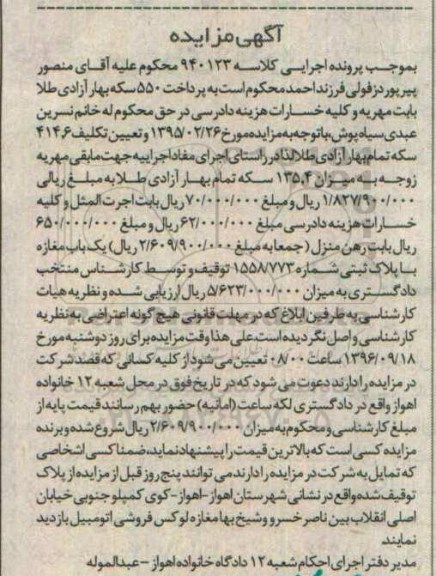 آگهی مزایده
بموجب پرونده اجرایی کلاسه ۹۴۰۱۲۳ محکوم علیه آقای منصور
پیرپور دزفولی فرزند احمد محکوم است به پرداخت ۵۵۰ سکه بهار آزادی طلا
بابت مهریه و کلیه خسارات هزینه دادرسی در حق محکوم له خانم نسرین
عبدی سیاه پوش، باتوجه به مزایده مورخ ۱۳۹۵/۰۲/۲۶ و تعیین تکلیف ۴۱۴,۶
سکه تمام بهار آزادی طلا لذا در راستای اجرای مفاد اجراییه جهت مابقی مهریه
زوجه به میزان ۱۳۵,۴ سکه تمام بهار آزادی طلا به مبلغ ریالی
۱/۸۲۷/۹۰۰/۰۰۰ ریال و مبلغ ۷۰/۰۰۰/۰۰۰ ریال بابت اجرت المثل و کلیه
خسارات هزینه دادرسی مبلغ ۶۲/۰۰۰/۰۰۰ ریال و مبلغ ۶۵۰/۰۰۰/۰۰۰
ریال بابت رهن منزل (جمعا به مبلغ ۲/۶۰۹/۹۰۰/۰۰۰ ریال) یک باب مغازه
با پلاک ثبتی شماره ۱۵۵۸/۷۷۳ توقیف و توسط کارشناس منتخب
دادگستری به میزان ۵/۶۲۳/۰۰۰/۰۰۰ ریال ارزیابی شده و نظریه هیات
کارشناسی به طرفین ابلاغ که در مهلت قانونی هیچ گونه اعتراضی به نظریه
کارشناسی واصل نگردیده است علی هذا وقت مزایده برای روز دوشنبه مورخ
۱۳۹۶/۰۹/۱۸ ساعت ۰۸/۰۰ تعیین می شود از کلیه کسانی که قصد شرکت
در مزایده را دارند دعوت می شود که در تاریخ فوق در محل شعبه ۱۲ خانواده
اهواز واقع در دادگستری لکه ساعت (امانیه) حضور بهم رسانند قیمت پایه از
مبلغ کارشناسی و محکوم به میزان ۲/۶۰۹/۹۰۰/۰۰۰ ریال شروع شده و برنده
مزایده کسی است که بالاترین قیمت را پیشنهاد نماید، ضمنا کسی اشخاصی
که تمایل به شرکت در مزایده را دارند می توانند پنج روز قبل از مزایده از پلاک
توقیف شده واقع در نشانی شهرستان اهواز-اهواز-کوی کمپلو جنوبی خیابان
اصلی انقلاب بین ناصر خسرو و شیخ بها مغازه لوکس فروشی اتومبیل بازدید
نمایند
مدیر دفتر اجرای احکام شعبه ۱۲ دادگاه خانواده اهواز - عبدالموله